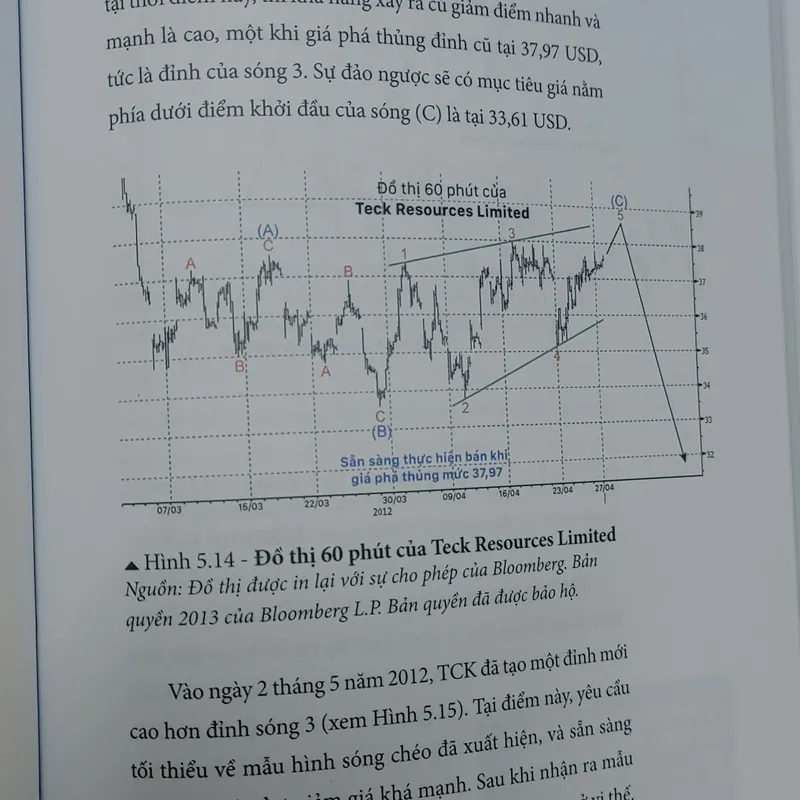 tại thời điểm này, thì khả năng xảy ra cú giảm điểm nhanh và
mạnh là cao, một khi giá phá thủng đỉnh cũ tại 37,97 USD,
tức là đỉnh của sóng 3. Sự đảo ngược sẽ có mục tiêu giá nằm
phía dưới điểm khởi đầu của sóng (C) là tại 33,61 USD.
Đồ thị 60 phút của
Teck Resources Limited
(C)
5
39
(A)
C
3
38
A
B
1
37
36
B
A
4
35
34
C
2
(B)
33
Sẵn sàng thực hiện bán khi
giá phá thủng mức 37,97
32
07/03 15/03 22/03 30/03 09/04 16/04 23/04 27/04
2012
▲ Hình 5.14 - Đồ thị 60 phút của Teck Resources Limited
Nguồn: Đồ thị được in lại với sự cho phép của Bloomberg. Bản
quyền 2013 của Bloomberg L.P. Bản quyền đã được bảo hộ.
Vào ngày 2 tháng 5 năm 2012, TCK đã tạo một đỉnh mới
cao hơn đỉnh sóng 3 (xem Hình 5.15). Tại điểm này, yêu cầu
tối thiểu về mẫu hình sóng chéo đã xuất hiện, và sẵn sàng
giảm giá khá mạnh. Sau khi nhận ra mẫu
vị thế.